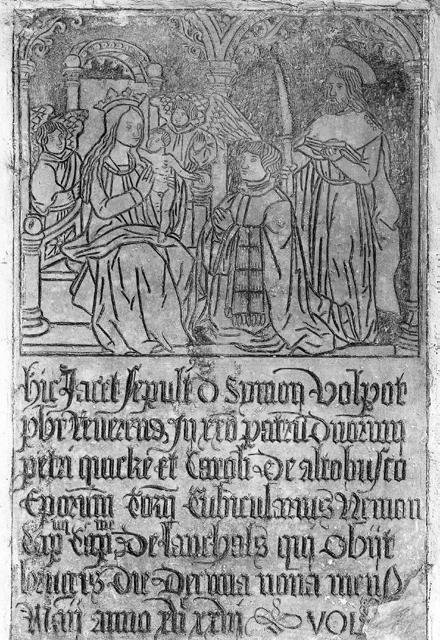 hic Jacet sepult d Symon volpot
pbr Reuerendus In xro patru duorum
petri quicke et Caroli De altobusco
Eporum Torn Cubicularius Nemon
Cap Cap De lanchals qui Obijt
brugis Die Decima nona mens
Maij anno xv xxiij VOL